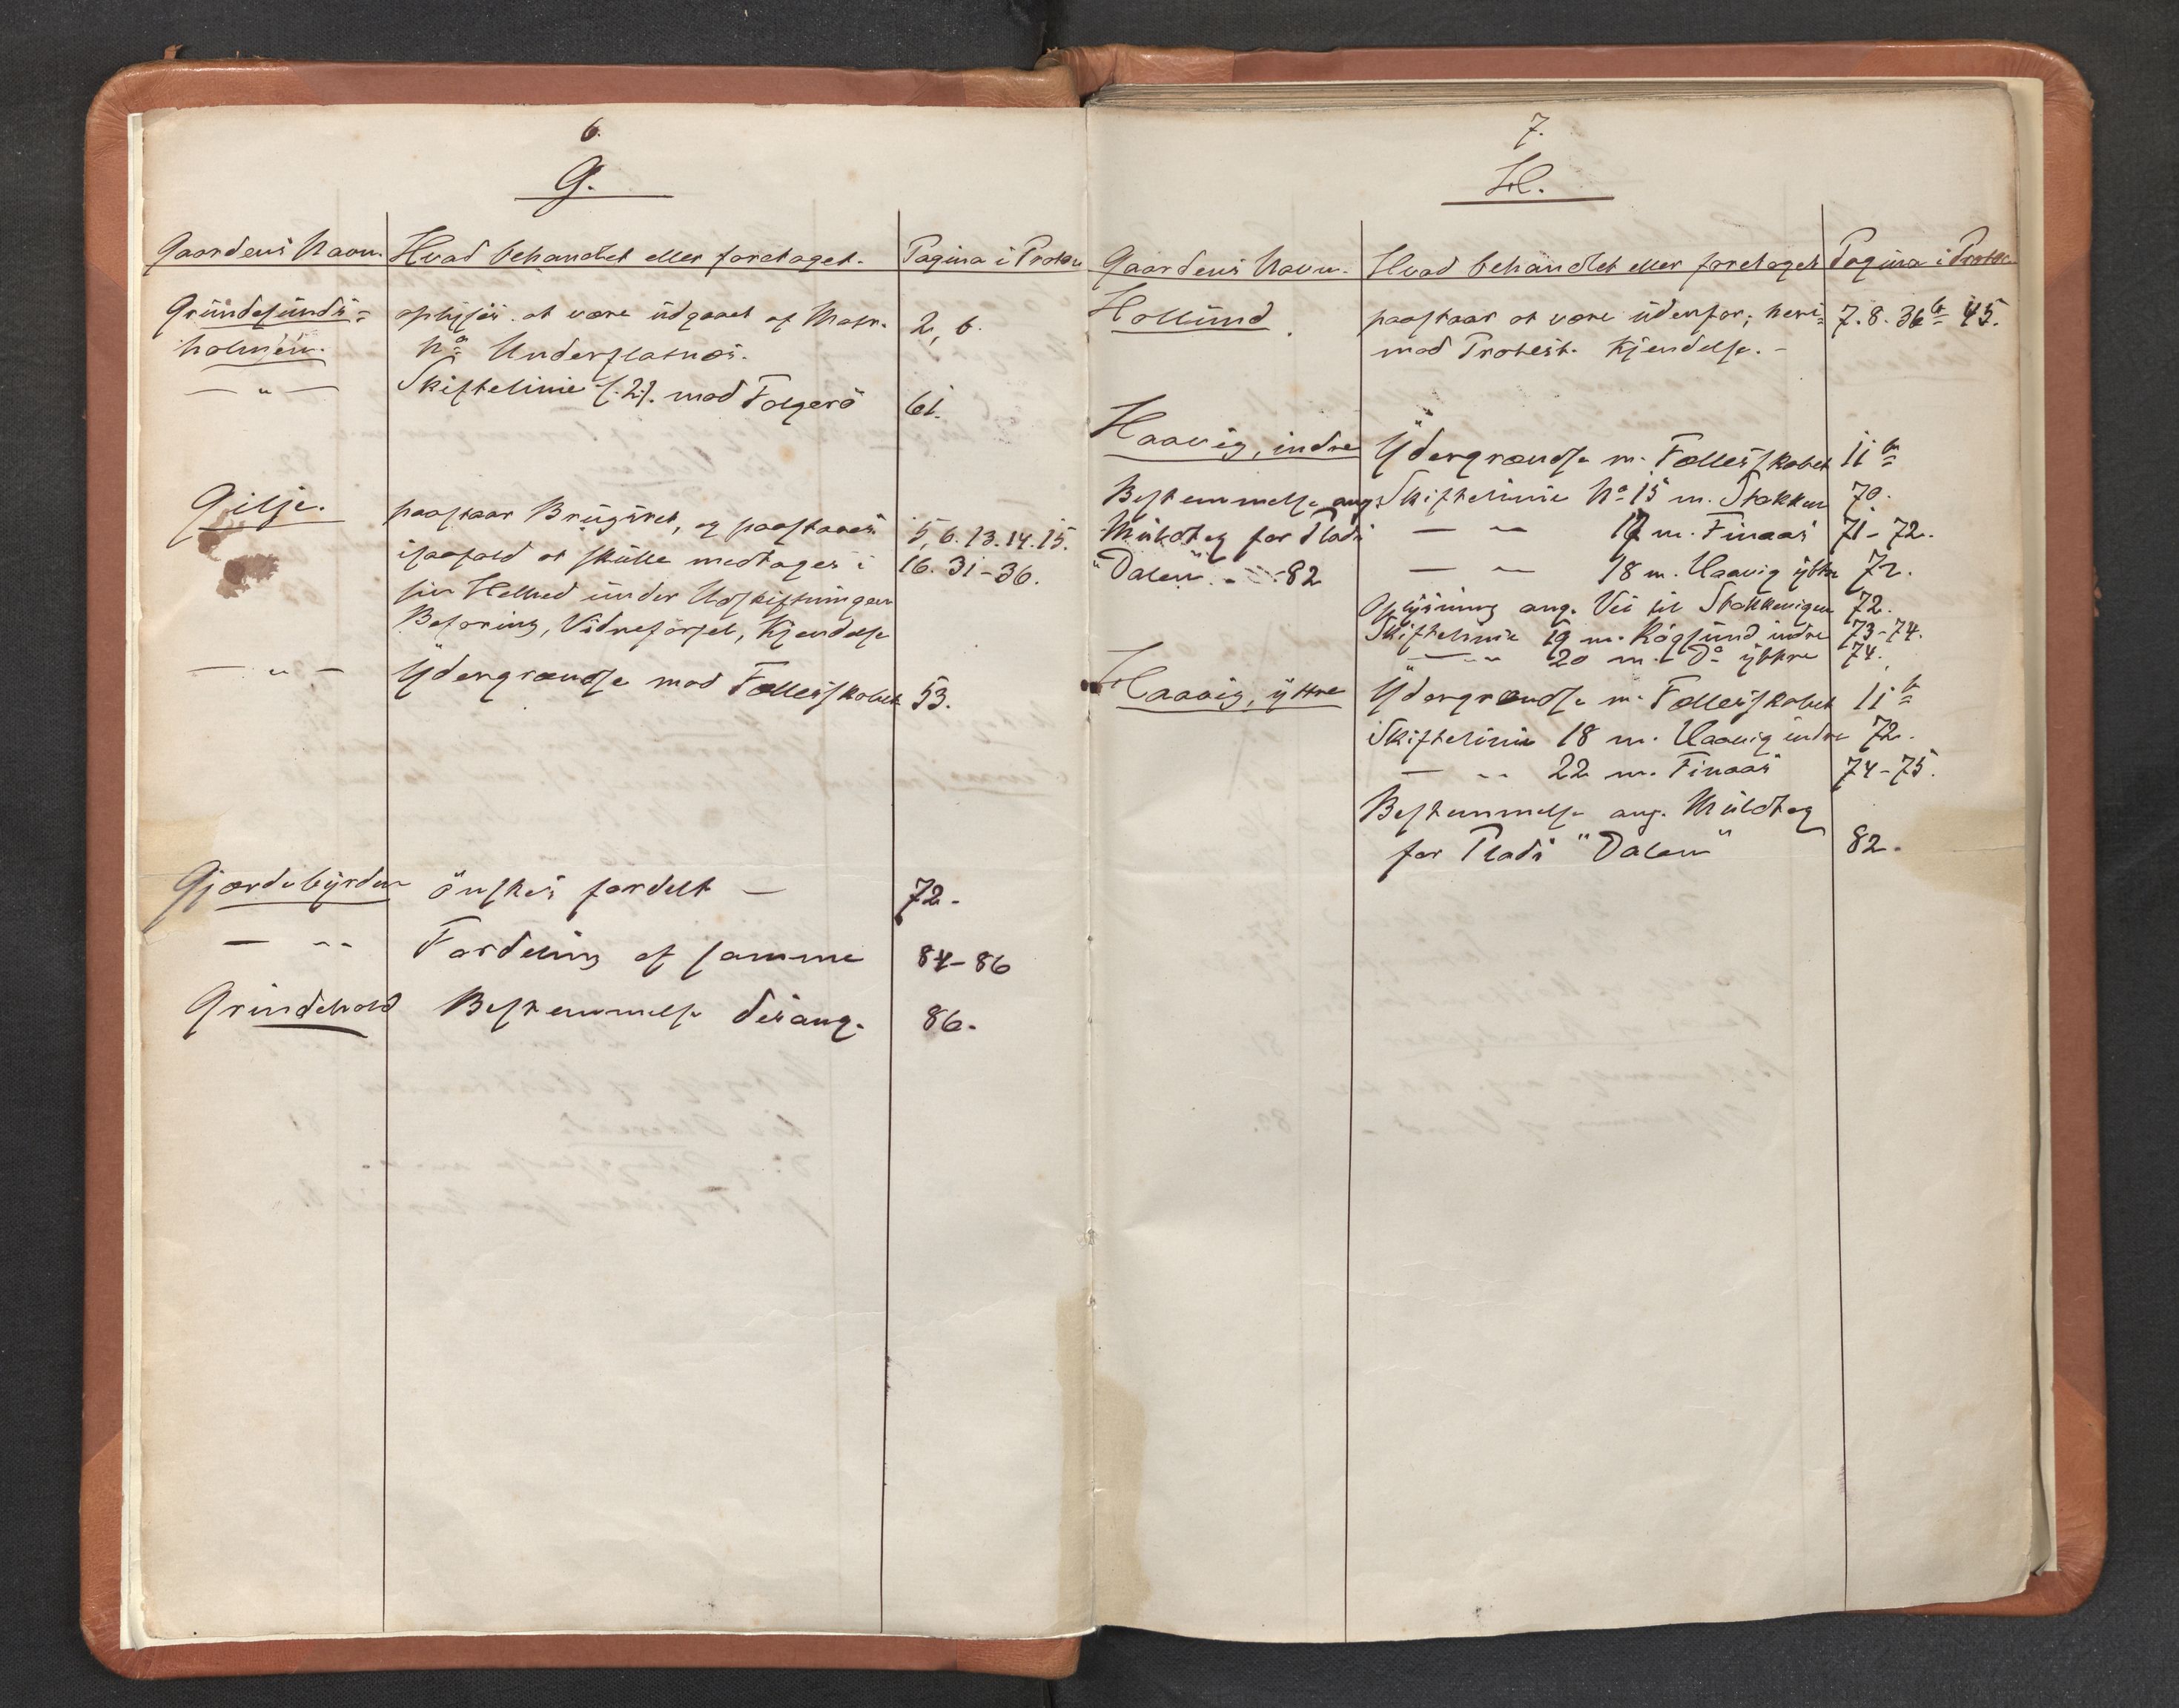 6.
G.
Gaardens Navn. Hvad behandlet eller foretaget. Pagina i Protoc
Grundesunds= oplyses at være udgaaet af Matr. 2, 6.
holmen. No Underflatnæs.
— " — Skiftelinie /:2:/. mod Folgerö 61.
Gilje. paastaar Brugsret, og paastaaes 5, 6. 13. 14. 15.
isaafald at skulle medtages i 16. 31-36.
sin Helhed under Udskiftningen
Befaring, Vidneförsel, Kjendelse
— " — Ydergrændse mod Fællesskabet 53.
Gjærdebyrden önskes fordelt — 72.
— " Fordeling af samme 84-86
Grindehold Bestemmelse desang. 86.
7.
H.
Gaardens Navn. Hvad behandlet eller foretaget Pagina i Protoc
Hollund paastaar at være udenfor; heri= 7. 8. 36b 45.
mod Protest. Kjendelse. -
Haavig, indre Ydergrændse m. Fællesskabet 11b
Bestemmelse ang. Skiftelinie No 15 m. Stokken 70.
Muldtag for Plads — " 17 m. Finaas 71-72.
"Dalen" - 82 — " 18 m. Haavig ytre 72.
Oplysning ang. Vei til Stokkevigen 72.
Skiftelinie 19 m. Rögsund indre 73-74.
— " 20 m. Do yttre 74.
Haavig, yttre Ydergrændse m. Fællesskabet 11b
Skiftelinie 18 m. Haavig indre 72.
— " 22 m. Finaas 74-75.
Bestemmelse ang. Muldtag
for Plads "Dalen" 82.